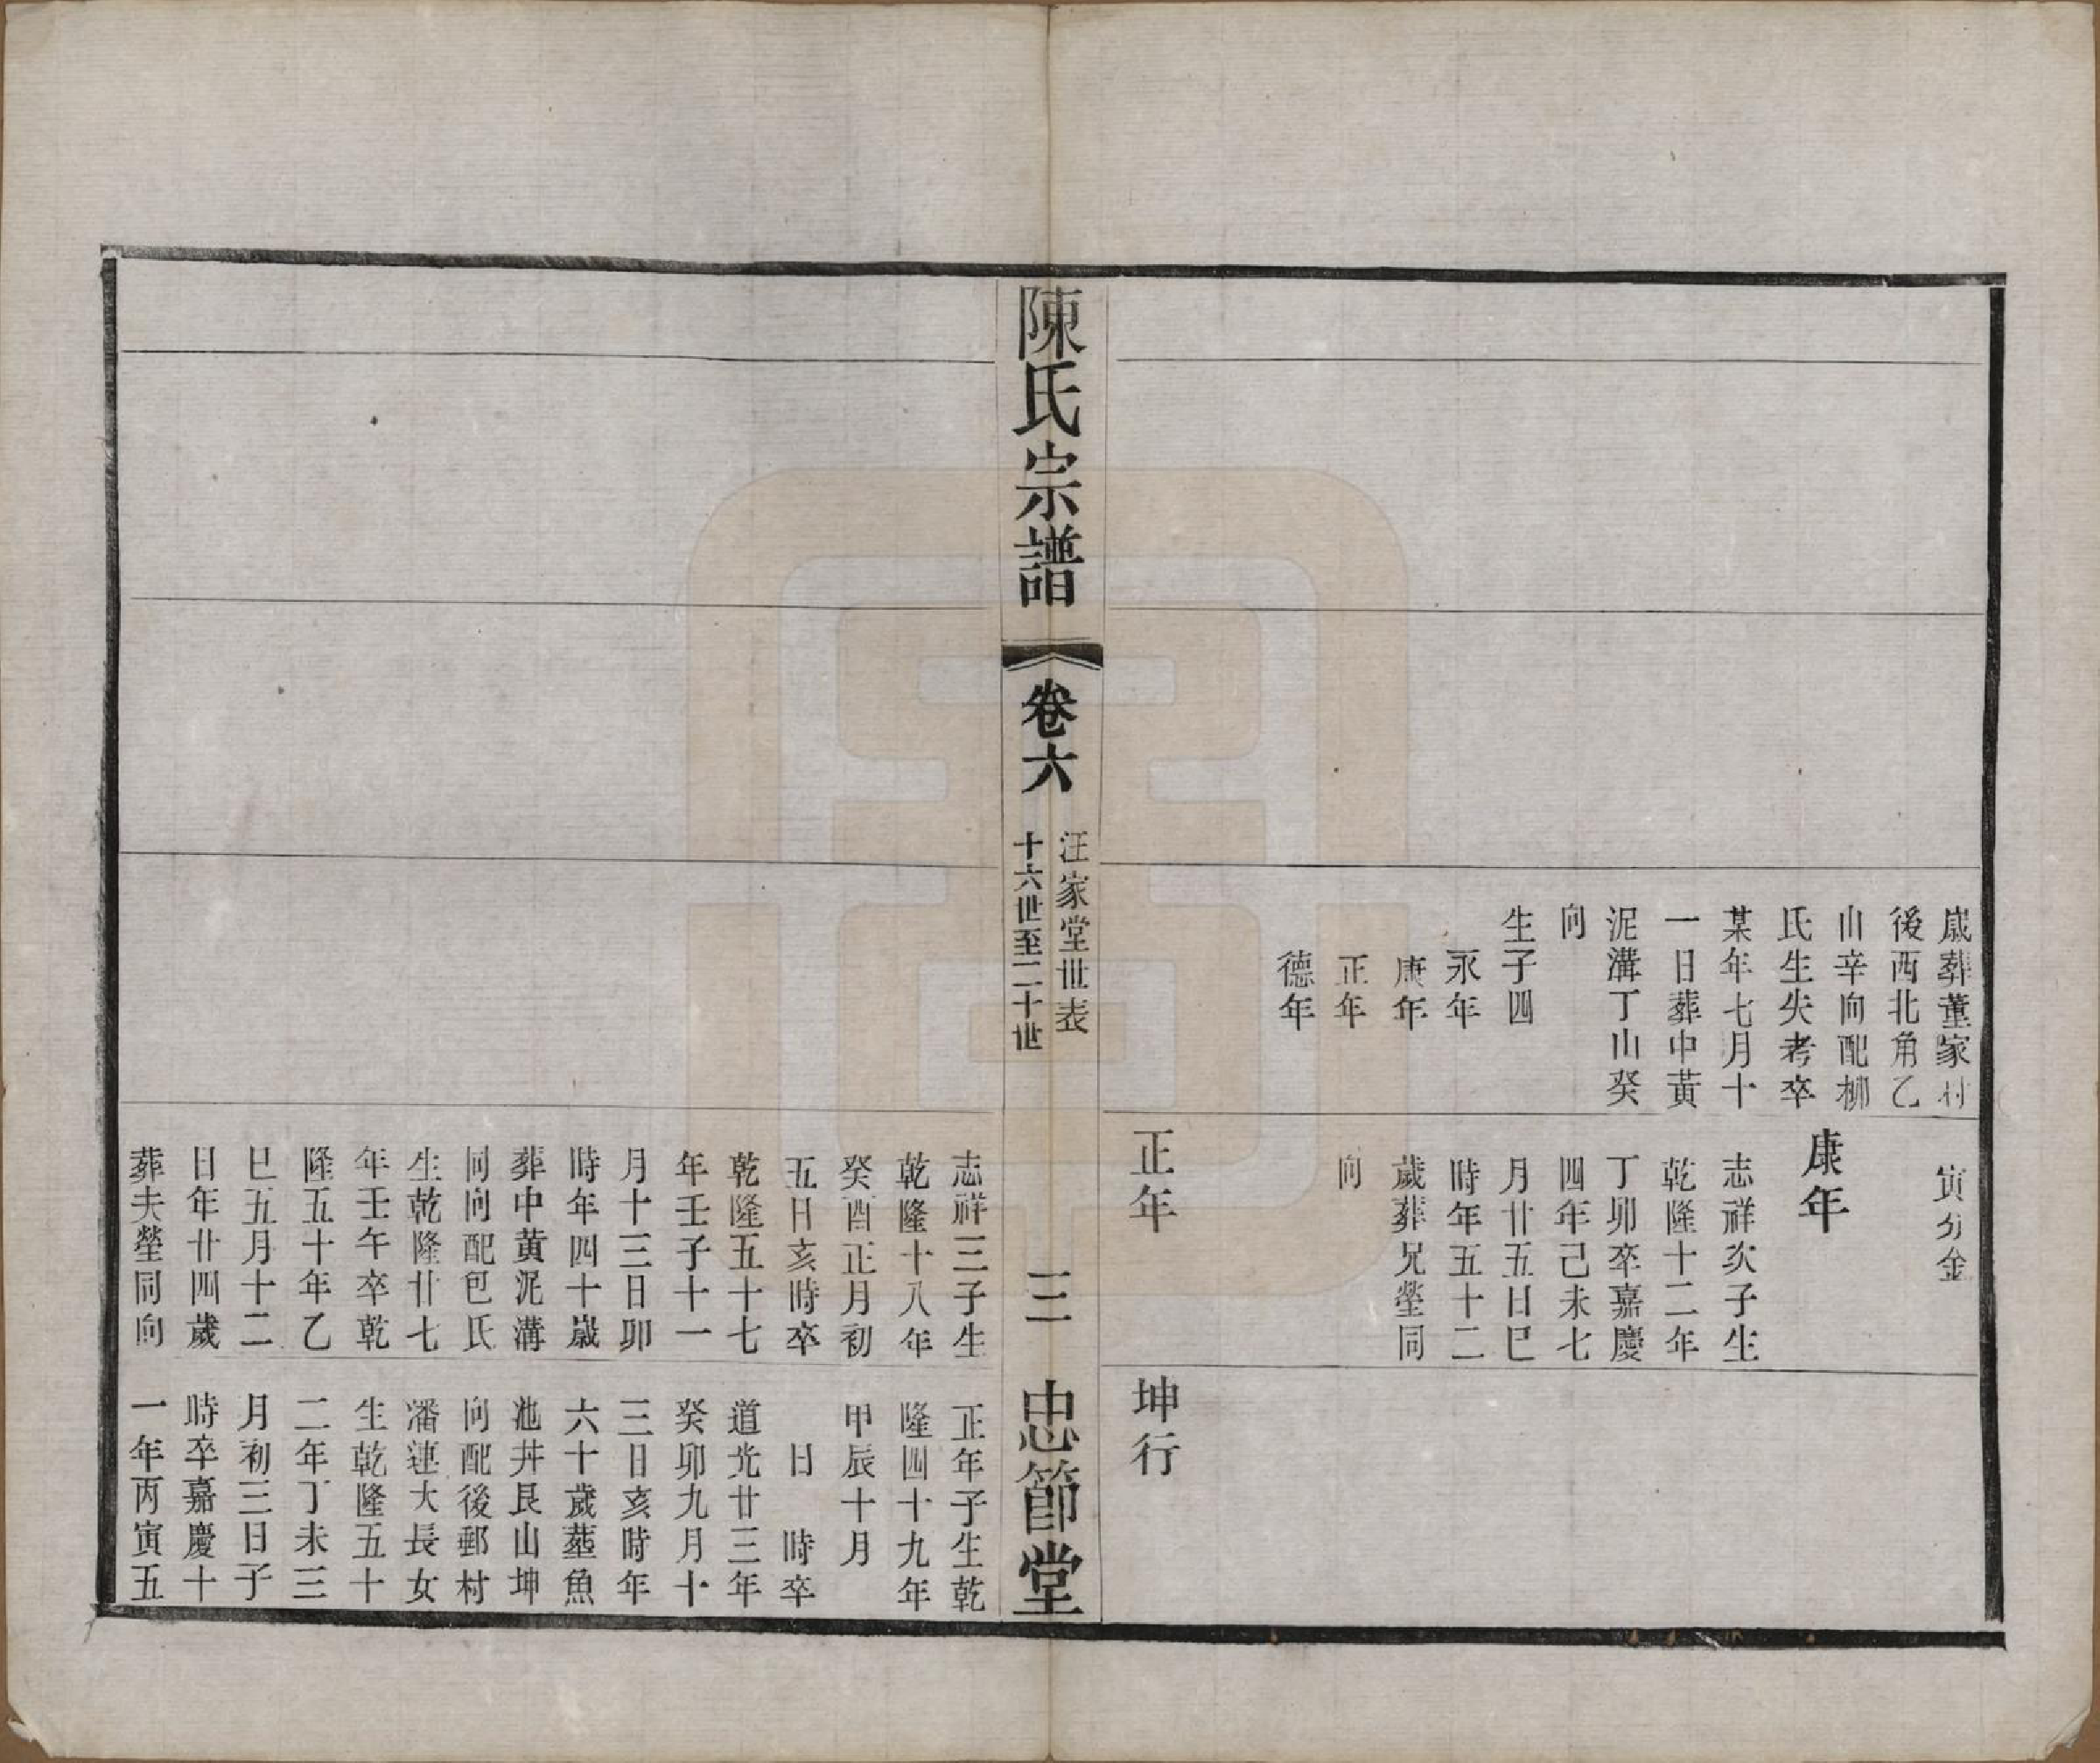 歲葬董家村
後西北角乙
山辛向配柳
氏生失考卒
某年七月十
一日葬中黃
泥溝丁山癸
向
生子四
永年
康年
正年
德年
寅分金
康年
志祥次子生
乾隆十二年
丁卯卒嘉慶
四年己未七
月廿五日巳
時年五十二
歲葬兄塋同
向
正年
坤行
陳氏宗譜
卷六
汪家堂世表
十六世至二十世
三
忠節堂
志祥三子生
乾隆十八年
癸酉正月初
五日亥時卒
乾隆五十七
年壬子十一
月十三日卯
時年四十歲
葬中黃泥溝
同向配包氏
生乾隆廿七
年壬午卒乾
隆五十年乙
巳五月十二
日年廿四歲
葬夫塋同向
正年子生乾
隆四十九年
甲辰十月
日 時卒
道光廿三年
癸卯九月十
三日亥時年
六十歲葬魚
池井艮山坤
向配後郵村
潘連大長女
生乾隆五十
二年丁未三
月初三日子
時卒嘉慶十
一年丙寅五